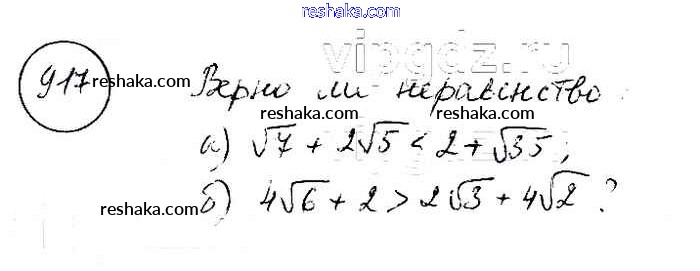 reshaka.com
vipgdz.ru
917 reshaka.com Верно ли неравенство
reshaka.com reshaka.com
а) √7 + 2√5 < 2 + √35;
reshaka.com reshaka.com
б) 4√6 + 2 > 2√3 + 4√2 ?
reshaka.com